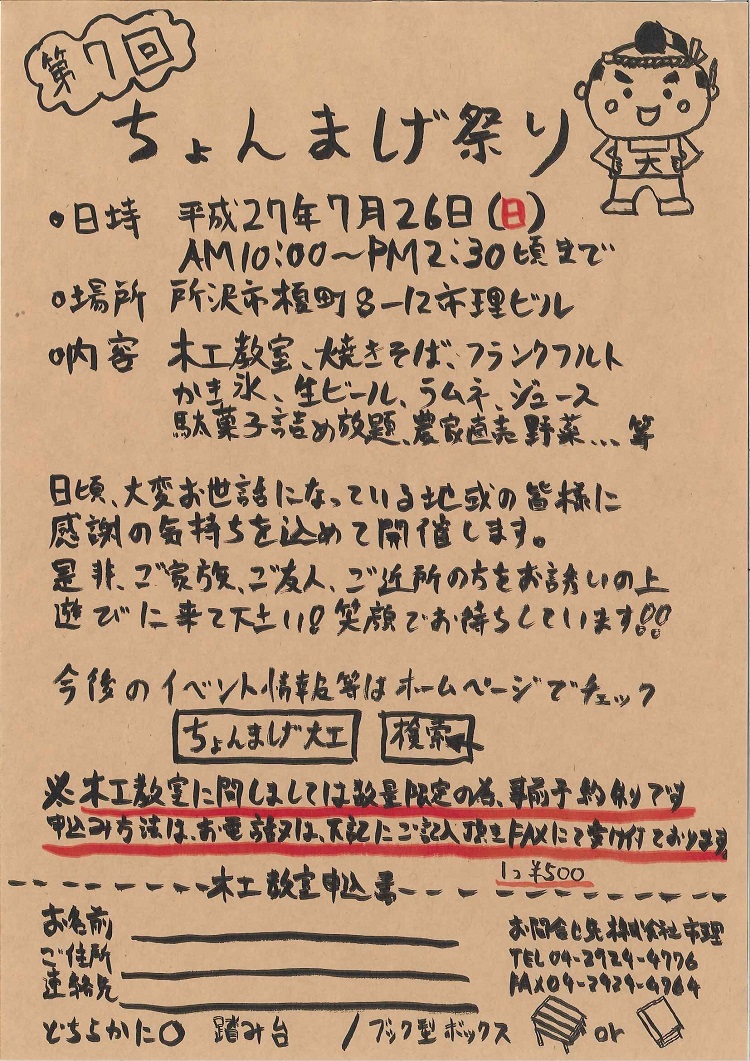 第7回
ちょんまげ祭り
大
•日時 平成27年7月26日(日)
AM10:00〜PM2:30頃まで
•場所 所沢市榎町8-12市理ビル
•内容 木工教室、焼きそば、フランクフルト
かき氷、生ビール、ラムネ、ジュース
駄菓子詰め放題、農家直売野菜...等
日頃、大変お世話になっている地域の皆様に
感謝の気持ちを込めて開催します。
是非、ご家族、ご友人、ご近所の方をお誘いの上
遊びに来て下さい!笑顔でお待ちしています!!
今後のイベント情報等はホームページでチェック
ちょんまげ大工 検索
※木工教室に関しましては数量限定の為、事前予約制です
申込み方法は、お電話又は、下記にご記入頂きFAXにて受け付ております。
1コ ¥500
木工教室申込書
お名前
ご住所
連絡先
お問合せ先 株式会社市理
TEL 04-2924-4776
FAX 04-2924-4764
どちらかに○ 踏み台 / ブック型ボックス or